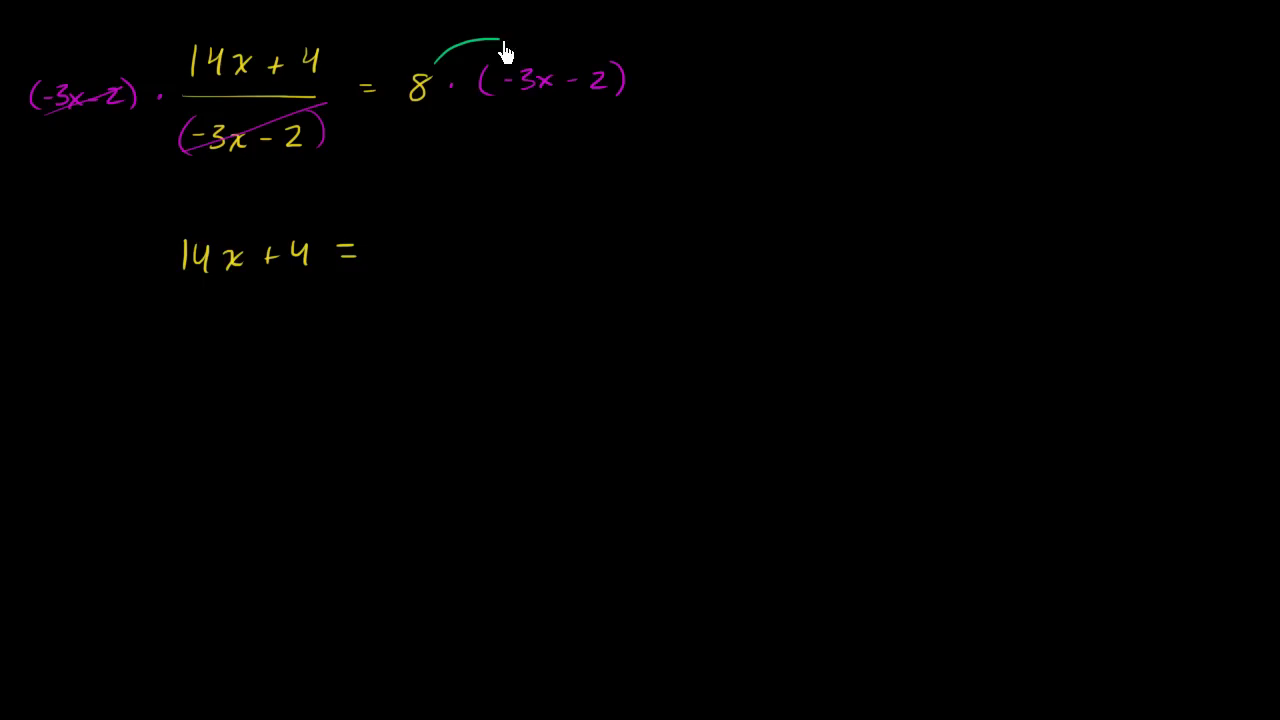 (-3x-2) · (14x + 4)/(-3x - 2) = 8 · (-3x - 2)
14x + 4 =